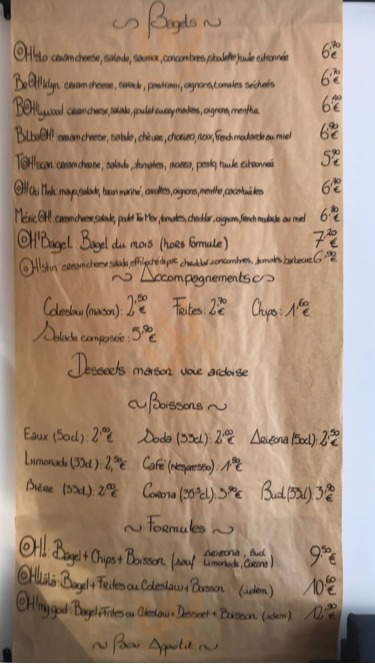 ~ Bagels ~
OH!slo cream cheese, salade, saumon, concombres, ciboulette, huile citronnée 6,70€
BrOOHklyn cream cheese, salade, pastrami, oignons, tomates séchées 6,70€
BOHllywood cream cheese, salade, poulet curry madras, oignons, menthe 6,40€
BilbaOH! cream cheese, salade, chèvre, chorizo, noix, french moutarde au miel 6,90€
TOHscan cream cheese, salade, tomates, mozza, pesto, huile citronnée 5,90€
mayo, salade, thon mariné, carottes, oignons, menthe, cacahuètes 6,70€
MexicOH! cream cheese, salade, poulet Tex Mex, tomates, cheddar, oignons, french moutarde au miel 6,90€
OH!Bagel: Bagel du mois (hors formule) 7,20€
cream cheese, salade, effiloché de porc, cheddar, concombres, tomates, barbecue 6,90
~ Accompagnements ~
Coleslaw (maison): 2,50€ Frites: 2,70€ Chips: 1,60€
Salade composée: 3,90€
Desserts maison voir ardoise
~ Boissons ~
Eaux (50cl): 2,00€ Soda (33cl): 2,00€ Arizona (50cl): 2,50€
Limonade (33cl): 2,50€ Café (Nespresso): 1,50€
Bière (33cl): 2,00€ Corona (35,5cl): 3,90€ Bud (33cl): 3,90€
~ Formules ~
OH!: Bagel + Chips + Boisson (sauf Arizona, Bud, Limonade, Corona) 9,50€
OH!làlà: Bagel + Frites ou Coleslaw + Boisson (idem) 10,60€
OH!mygod: Bagel + Frites ou Coleslaw + Dessert + Boisson (idem) 12,90€
~ Bon Appétit ~